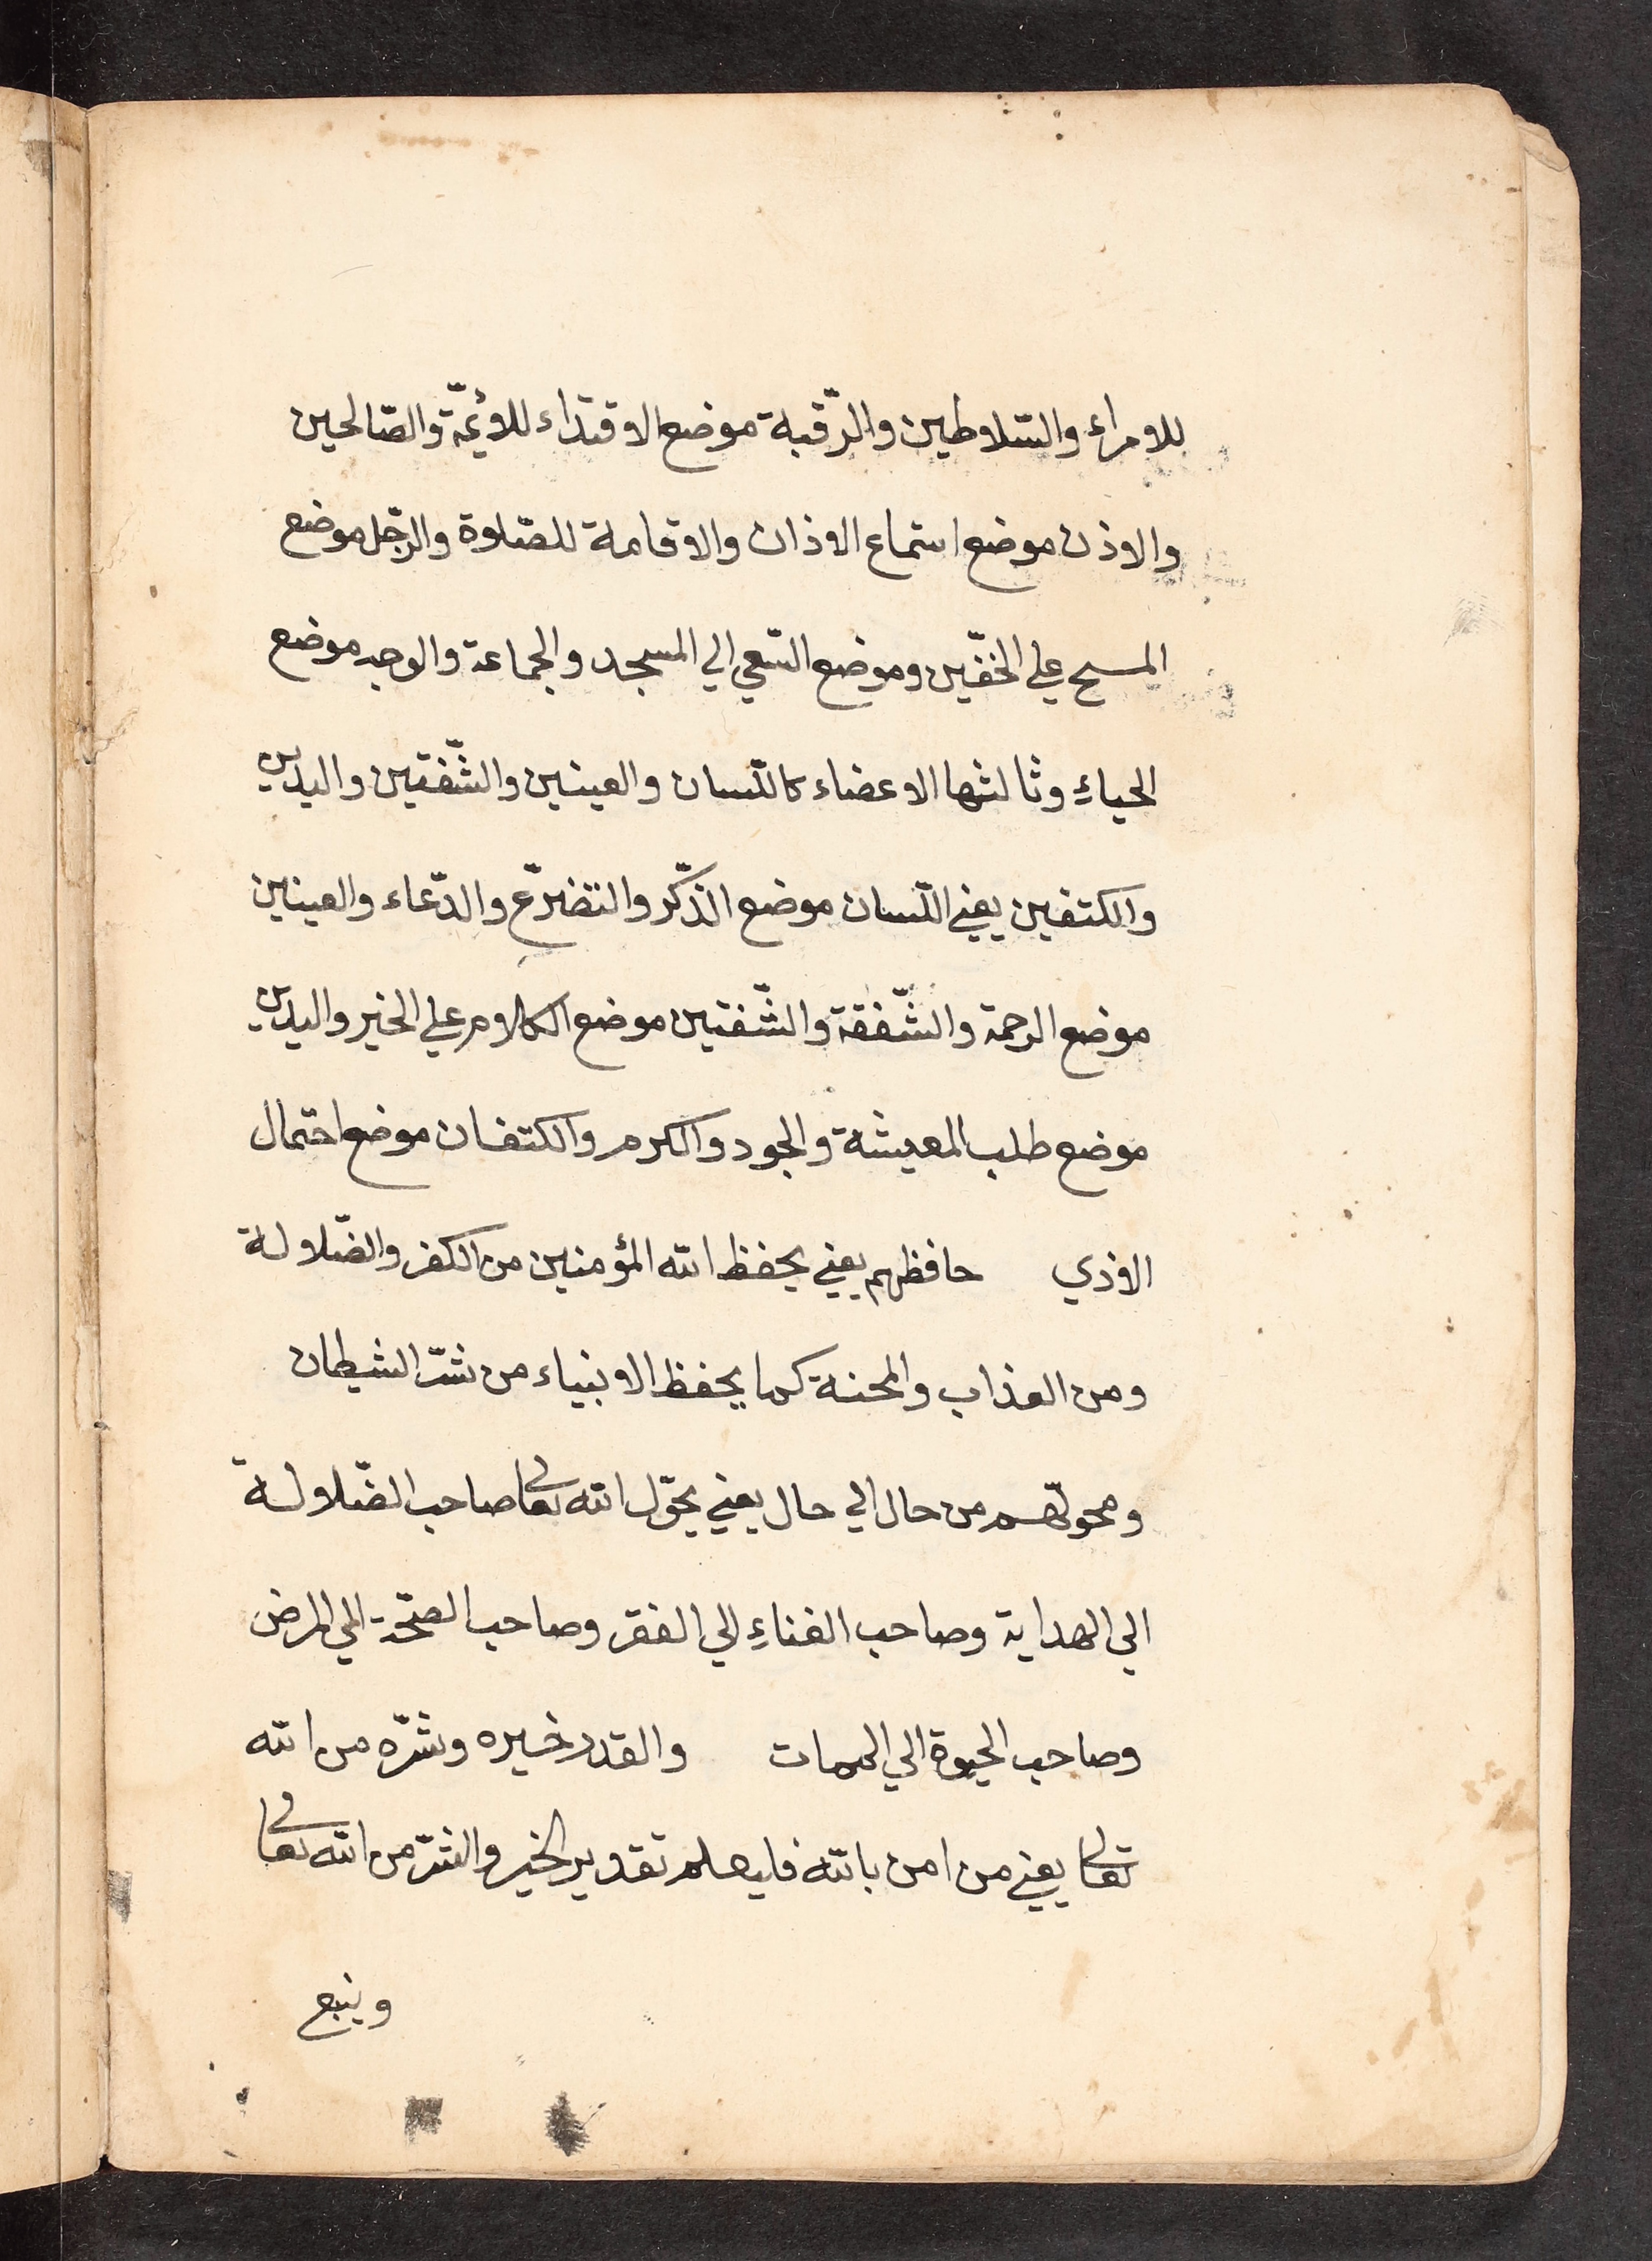 للامراء والسّلاطين والرّقبة موضع الاقتداء للائمّة والصّالحين
والاذن موضع استماع الاذان والاقامة للصّلوة والرّجل موضع
المسح علي الخفّين وموضع السّعي الي المسجد والجماعة والوجه موضع
الحياءِ وثالثها الاعضاء كاللّسان والعينين والشّفتين واليدين
والكتفين يعني اللّسان موضع الذّكر والتضرّع والدّعاء والعينين
موضع الرحمة والشّفقة والشّفتين موضع الكلام علي الخير واليدين
موضع طلب المعيشة والجود والكرم والكتفان موضع احتمال
الاذي حافظهم يعني يحفظ الله المؤمنين من الكفر والضّلالة
ومن العذاب والمحنة كما يحفظ الانبياء من شرّ الشيطان
ومحولّهم من حال الي حال يعني يحوّل الله تعالى صاحب الضّلالة
الي الهداية وصاحب الغناءِ الي الفقر وصاحب الصّحّة الي المرض
وصاحب الحيوة الي الممات والقدر خيره وشرّه من الله
تعالى يعني من امن بالله فليعلم تقدير الخير والشرّ من الله تعالى